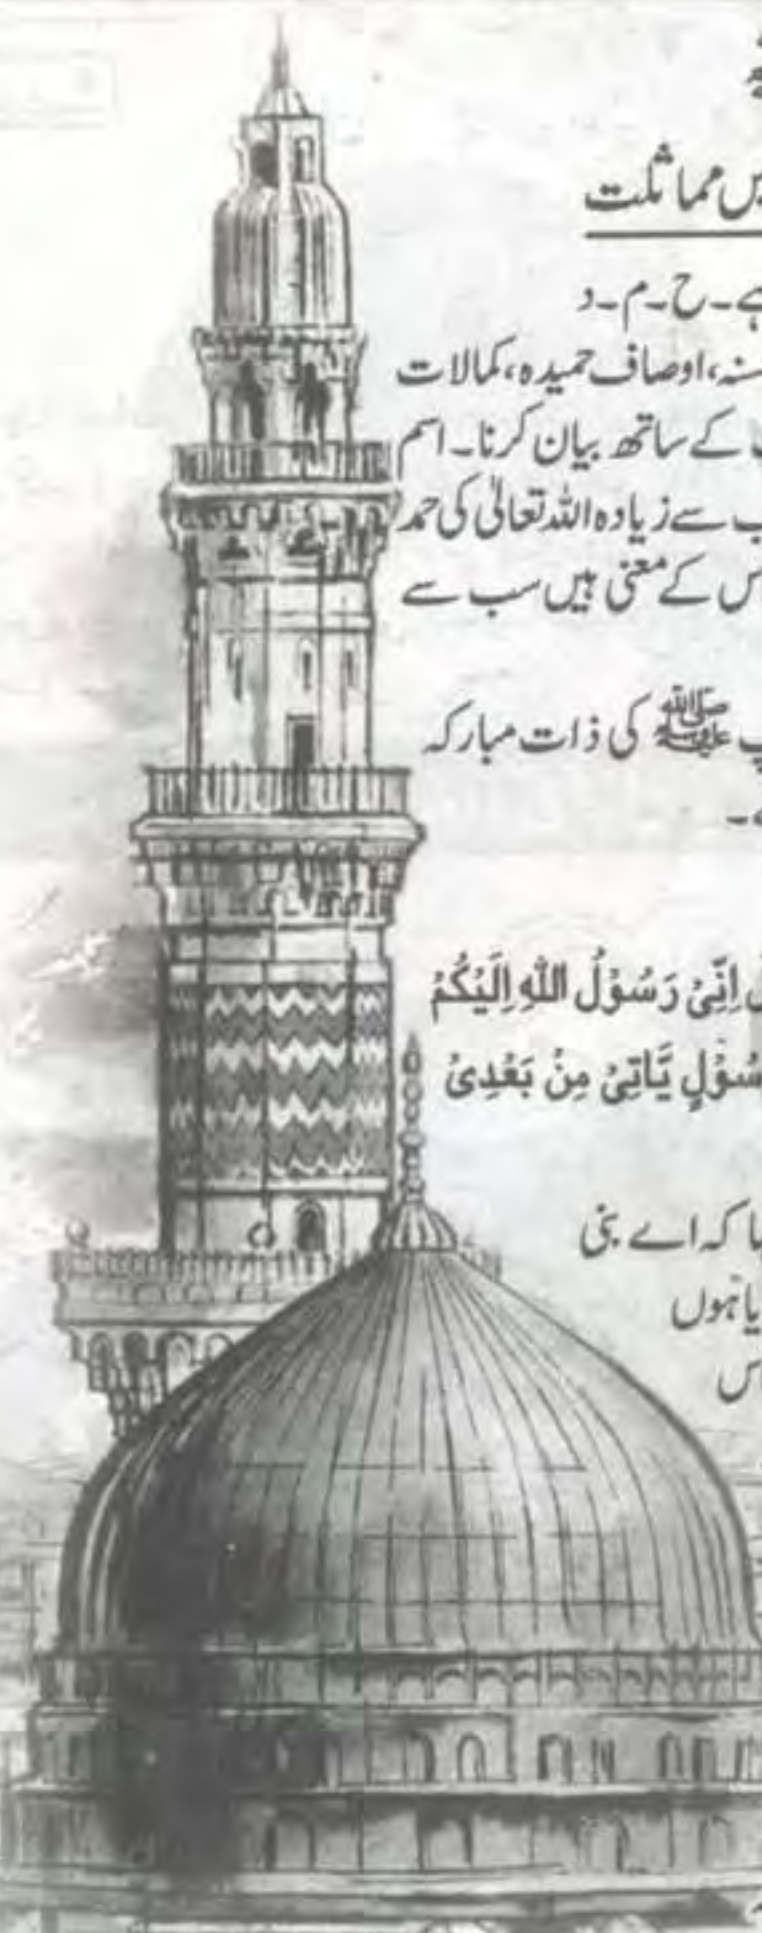 میں مماثلت
ہے۔ح۔م۔د
سنہ،اوصاف حمیدہ،کمالات
کے ساتھ بیان کرنا۔اسم
سے زیادہ اللہ تعالیٰ کی حمد
اس کے معنی ہیں سب سے
ﷺ کی ذات مبارکہ
اِنِّیْ رَسُوْلُ اللّٰهِ اِلَیْکُمْ
یَّاتِیْ مِنْ بَعْدِیْ
کہ اے بنی
ہوں